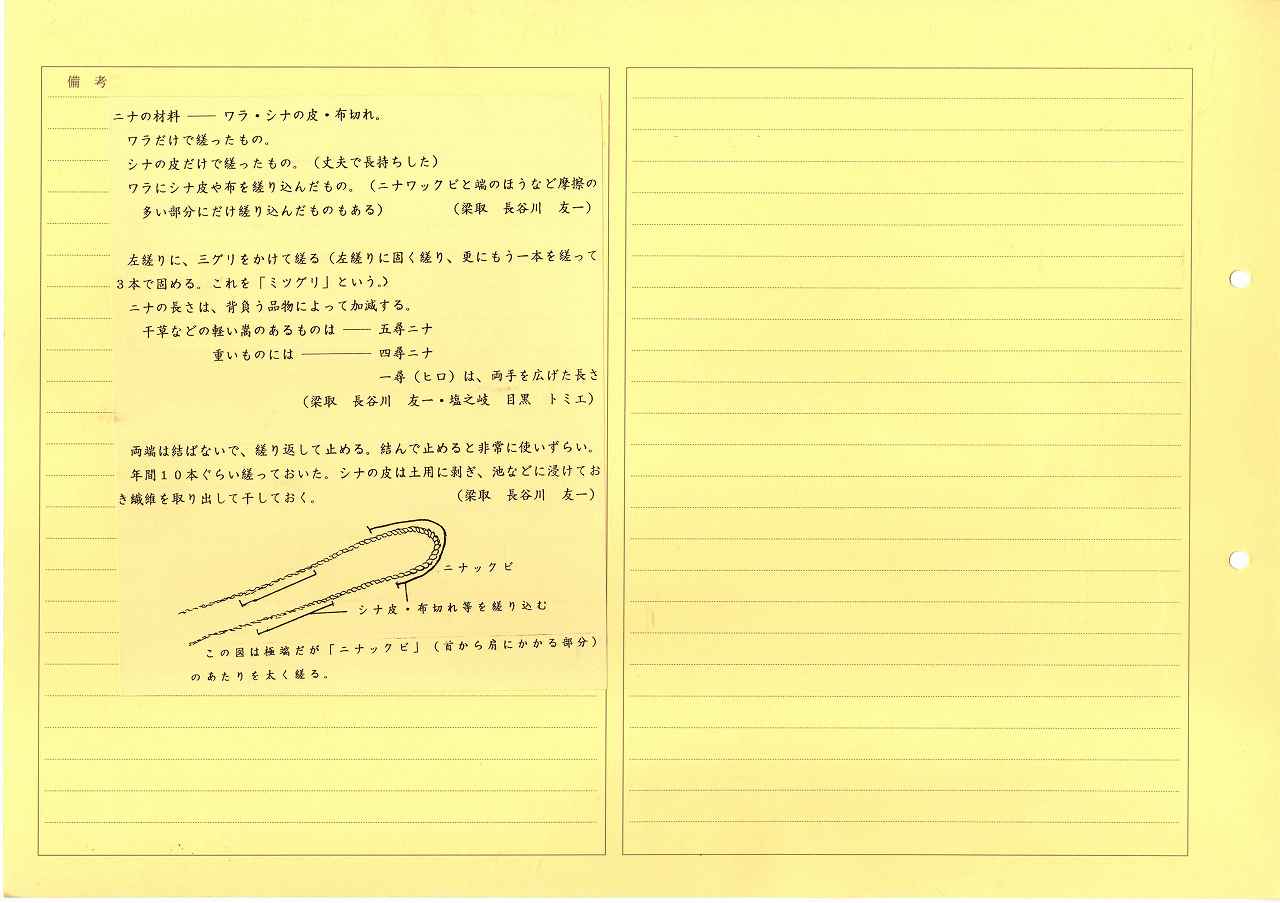 備考
ニナの材料 ―― ワラ・シナの皮・布切れ。
ワラだけで縒ったもの。
シナの皮だけで縒ったもの。（丈夫で長持ちした）
ワラにシナ皮や布を縒り込んだもの。（ニナワックビと端のほうなど摩擦の
多い部分にだけ縒り込んだものもある）　（梁取　長谷川　友一）
左縒りに、三グリをかけて縒る（左縒りに固く縒り、更にもう一本を縒って
３本で固める。これを「ミツグリ」という。）
ニナの長さは、背負う品物によって加減する。
干草などの軽い嵩のあるものは ―― 五尋ニナ
重いものには ――――― 四尋ニナ
一尋（ヒロ）は、両手を広げた長さ
（梁取　長谷川　友一・塩之岐　目黒　トミエ）
両端は結ばないで、縒り返して止める。結んで止めると非常に使いずらい。
年間１０本ぐらい縒っておいた。シナの皮は土用に剥ぎ、池などに浸けてお
き繊維を取り出して干しておく。　（梁取　長谷川　友一）
ニナックビ
シナ皮・布切れ等を縒り込む
この図は極端だが「ニナックビ」（首から肩にかかる部分）
のあたりを太く縒る。